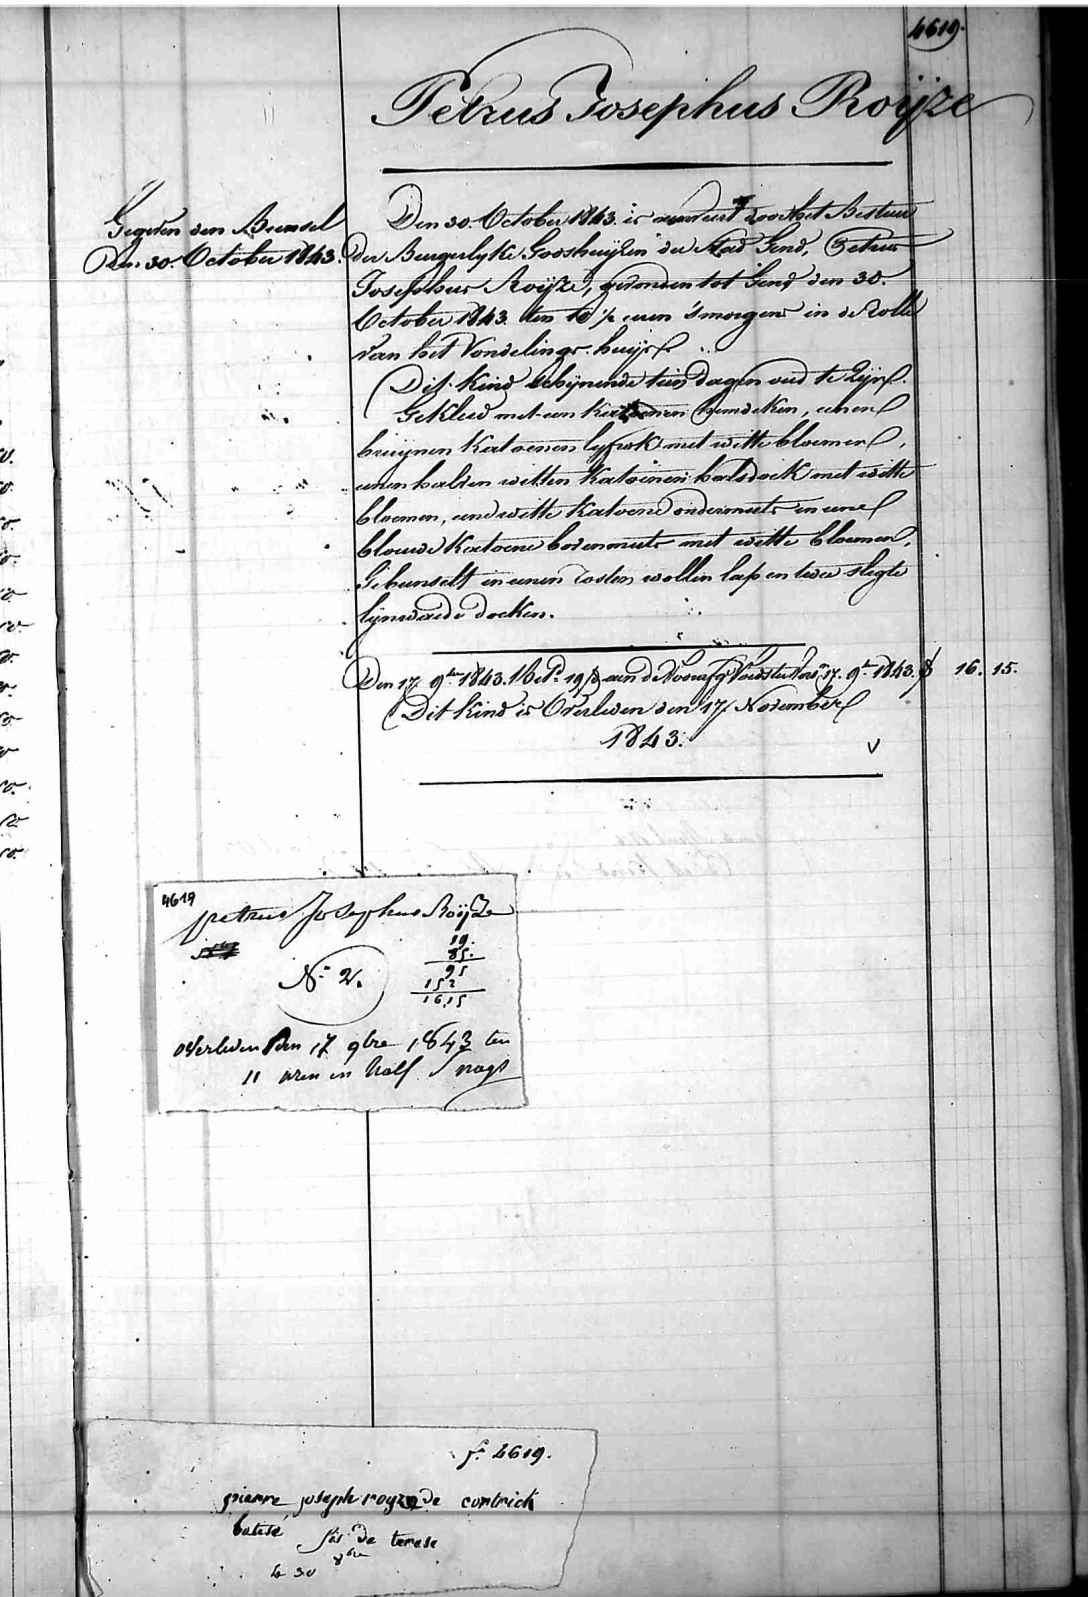 4619.
Petrus Josephus Roÿze
Gegeven den Bunsel
Den 30. October 1843.
Den 30. October 1843. is aenveert door het Bestuur
der Burgerlyke Godshuijzen der Stad Gend, Petrus
Josephus Roÿze, gevonden tot Gend den 30.
October 1843. ten 10 ½ uren 's morgens in de Rolle
van het Vondelings-huijs.
Dit Kind schijnende tien dagen oud te Zijn.
Gekleed met een Katoenen hemdeken, eenen
bruijnen Katoenen lyfrok met witte bloemen,
eenen halven witten Katoenen halsdoek met witte
bloemen, eene witte Katoene ondermuts en eene
blauwe Katoene bovenmuts met witte bloemen,
Gebunselt in eenen rosten wollen lap en twee slegte
lijnwaede doeken.
Den 17. 9bre 1843. aen de Voedster 17. 9bre 1843. 16. 15.
Dit Kind is Overleden den 17 November
1843.
4619
petrus Josephus Roÿze
19.
85.
95
152
16,15
No 2.
overleden den 17 9bre 1843 ten
11 uren en half s nags
fo 4619.
pierre joseph royze de cortrick
batisé fis de terese
le 30 8bre